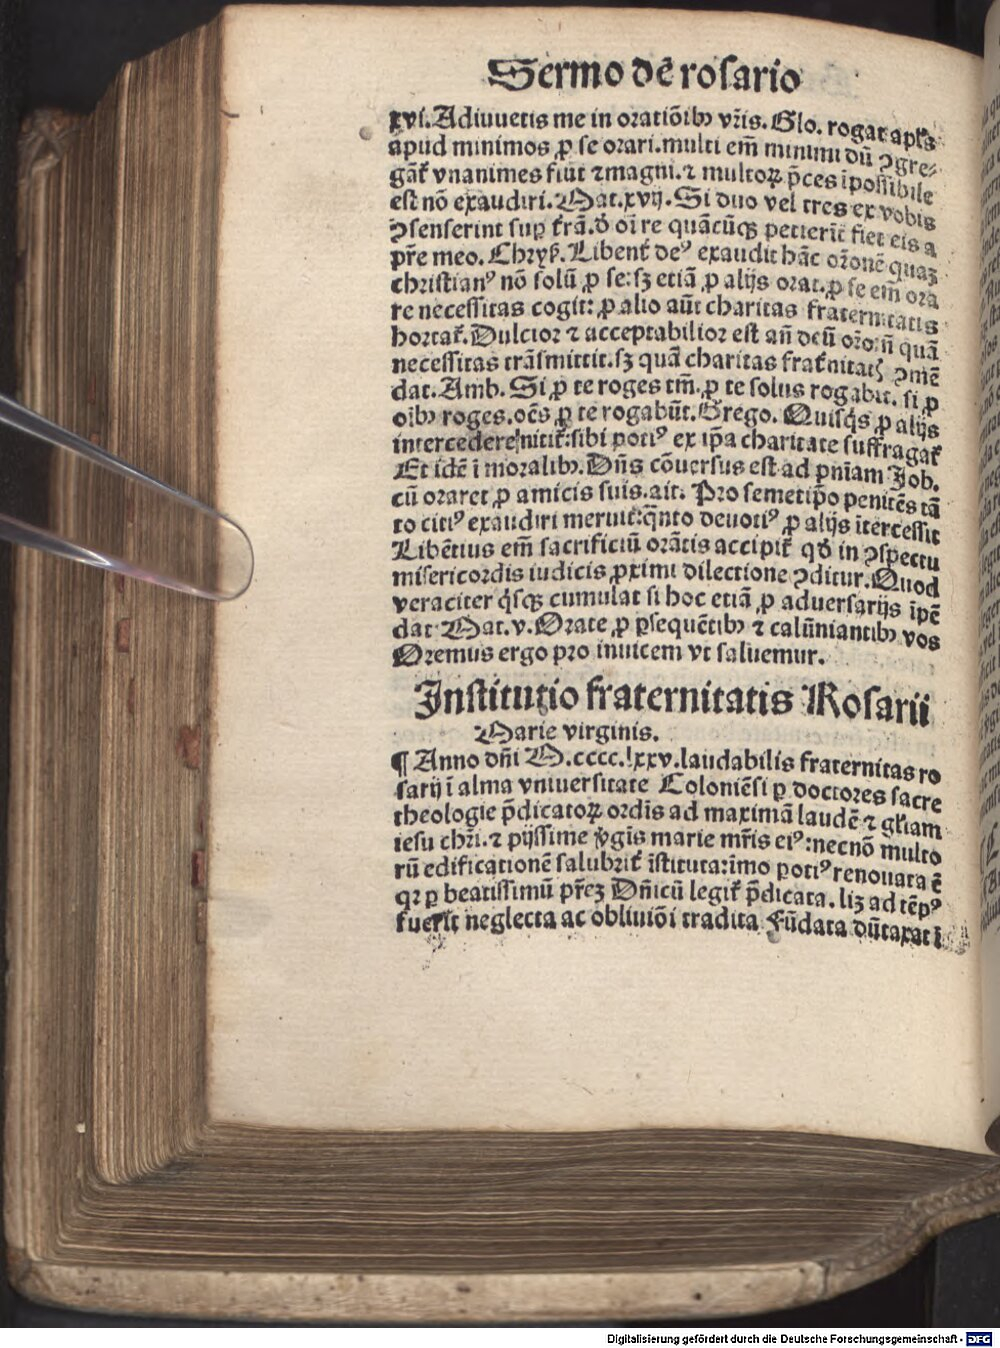 Sermo de̅ rosario
xvi. Adiuuetis me in oratio̅ibꝫ vr̅is. Glo. rogat apl's
apud minimos ꝓ se orari. multi em̅ minimi du̅ ꝯgre⸗
gāt' vnanimes fiūt ⁊ magni. ⁊ multoꝝ p̅ces īpossibile
est nō exaudiri. Mat. xvij. Si duo vel tres ex vobis
ꝯsenserint sup t'rā. d' oī re quācūqꝫ petierīt fiet eis a
pr̅e meo. Chrys. Libent' deꝰ exaudit hāc or̅onē quaꝫ
christianꝰ nō solū ꝓ se: sꝫ etiā ꝓ alijs orat. ꝓ se em̅ ora
re necessitas cogit: ꝓ alio aūt charitas fraternitatis
hortat'. Dulcior ⁊ acceptabilior est an̄ deū or̅o: n̄ quā
necessitas trāsmittit. sꝫ quā charitas frat'nitatꝭ ꝯmē
dat. Amb. Si ꝓ te roges tm̄. ꝓ te solus rogabit. si ꝓ
oībꝫ roges. oēs ꝓ te rogabūt. Grego. Quisq̇s ꝓ alijs
intercedere nitit': sibi potiꝰ ex ip̄a charitate suffragat'
Et idē ī moralibꝫ. Dn̄s cōuersus est ad pn̄iam Job.
cū oraret ꝓ amicis suis. ait. Pro semetip̄o penitēs tā
to citiꝰ exaudiri meruit: q̄nto deuotiꝰ ꝓ alijs ītercessit
Libētius em̄ sacrificiū orātis accipit' qd' in ꝯspectu
misericordis iudicis ꝓximi dilectione ꝯditur. Quod
veraciter q̇sqꝫ cumulat si hoc etiā ꝓ aduersarijs īpē
dat Mat. v. Orate ꝓ ꝑsequētibꝫ ⁊ calūniantibꝫ vos
Oremus ergo pro inuicem vt saluemur.
Institutio fraternitatis Rosarii
Marie virginis.
¶ Anno dn̄i M.cccc.lxxv. laudabilis fraternitas ro
sarij ī alma vniuersitate Coloniēsi ꝑ doctores sacre
theologie p̄dicatoꝝ ordīs ad maximā laudē ⁊ gl'iam
iesu chr̄i. ⁊ pijssime v̇gīs marie mr̄is eiꝰ: necnō multo
rū edificationē salubrit' īstituta: īmo potiꝰ renouata ē
qꝛ ꝑ beatissimū pr̄eꝫ Dn̄icū legit' p̄dicata. lꝫ ad tēpꝰ
fuerit neglecta ac obliuiōi tradita Fūdata dūtaxat ī
Digitalisierung gefördert durch die Deutsche Forschungsgemeinschaft - DFG